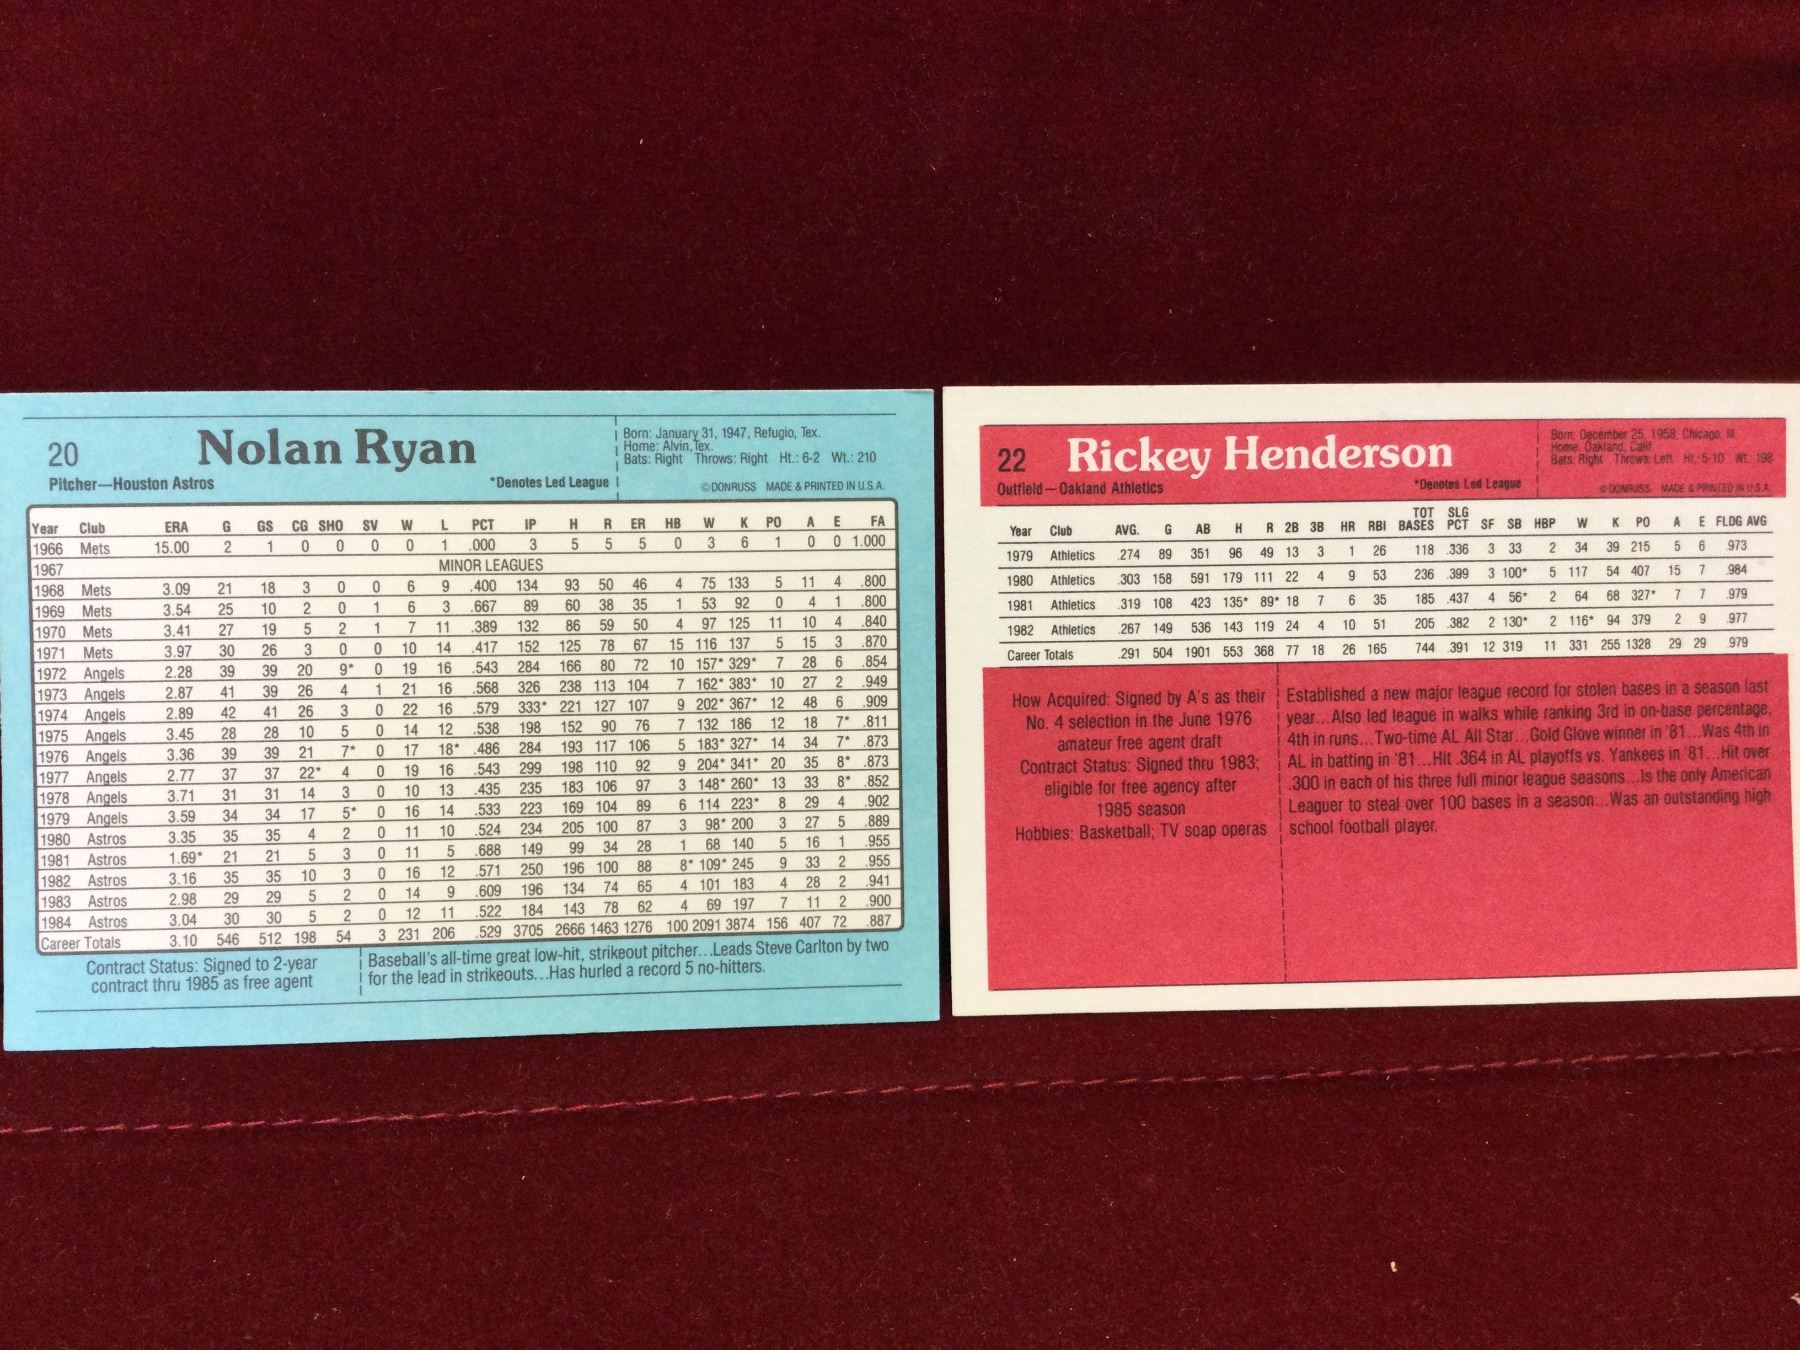 20
Nolan Ryan
Pitcher—Houston Astros
*Denotes Led League
Born: January 31, 1947, Refugio, Tex.
Home: Alvin, Tex.
Bats: Right Throws: Right Ht.: 6-2 Wt.: 210
©DONRUSS MADE & PRINTED IN U.S.A.
Year Club ERA G GS CG SHO SV W L PCT IP H R ER HB W K PO A E FA
1966 Mets 15.00 2 1 0 0 0 0 1 .000 3 5 5 5 0 3 6 1 0 0 1.000
1967 MINOR LEAGUES
1968 Mets 3.09 21 18 3 0 0 6 9 .400 134 93 50 46 4 75 133 5 11 4 .800
1969 Mets 3.54 25 10 2 0 1 6 3 .667 89 60 38 35 1 53 92 0 4 1 .800
1970 Mets 3.41 27 19 5 2 1 7 11 .389 132 86 59 50 4 97 125 11 10 4 .840
1971 Mets 3.97 30 26 3 0 0 10 14 .417 152 125 78 67 15 116 137 5 15 3 .870
1972 Angels 2.28 39 39 20 9* 0 19 16 .543 284 166 80 72 10 157* 329* 7 28 6 .854
1973 Angels 2.87 41 39 26 4 1 21 16 .568 326 238 113 104 7 162* 383* 10 27 2 .949
1974 Angels 2.89 42 41 26 3 0 22 16 .579 333* 221 127 107 9 202* 367* 12 48 6 .909
1975 Angels 3.45 28 28 10 5 0 14 12 .538 198 152 90 76 7 132 186 12 18 7* .811
1976 Angels 3.36 39 39 21 7* 0 17 18* .486 284 193 117 106 5 183* 327* 14 34 7* .873
1977 Angels 2.77 37 37 22* 4 0 19 16 .543 299 198 110 92 9 204* 341* 20 35 8* .873
1978 Angels 3.71 31 31 14 3 0 10 13 .435 235 183 106 97 3 148* 260* 13 33 8* .852
1979 Angels 3.59 34 34 17 5* 0 16 14 .533 223 169 104 89 6 114 223* 8 29 4 .902
1980 Astros 3.35 35 35 4 2 0 11 10 .524 234 205 100 87 3 98* 200 3 27 5 .889
1981 Astros 1.69* 21 21 5 3 0 11 5 .688 149 99 34 28 1 68 140 5 16 1 .955
1982 Astros 3.16 35 35 10 3 0 16 12 .571 250 196 100 88 8* 109* 245 9 33 2 .955
1983 Astros 2.98 29 29 5 2 0 14 9 .609 196 134 74 65 4 101 183 4 28 2 .941
1984 Astros 3.04 30 30 5 2 0 12 11 .522 184 143 78 62 4 69 197 7 11 2 .900
Career Totals 3.10 546 512 198 54 3 231 206 .529 3705 2666 1463 1276 100 2091 3874 156 407 72 .887
Contract Status: Signed to 2-year
contract thru 1985 as free agent
Baseball's all-time great low-hit, strikeout pitcher...Leads Steve Carlton by two
for the lead in strikeouts...Has hurled a record 5 no-hitters.
22
Rickey Henderson
Outfield—Oakland Athletics
*Denotes Led League
Born: December 25, 1958, Chicago, Ill.
Home: Oakland, Calif.
Bats: Right Throws: Left Ht.: 5-10 Wt.: 198
©DONRUSS MADE & PRINTED IN U.S.A.
Year Club AVG. G AB H R 2B 3B HR RBI TOT BASES SLG PCT SF SB HBP W K PO A E FLDG AVG
1979 Athletics .274 89 351 96 49 13 3 1 26 118 .336 3 33 2 34 39 215 5 6 .973
1980 Athletics .303 158 591 179 111 22 4 9 53 236 .399 3 100* 5 117 54 407 15 7 .984
1981 Athletics .319 108 423 135* 89* 18 7 6 35 185 .437 4 56* 2 64 68 327* 7 7 .979
1982 Athletics .267 149 536 143 119 24 4 10 51 205 .382 2 130* 2 116* 94 379 2 9 .977
Career Totals .291 504 1901 553 368 77 18 26 165 744 .391 12 319 11 331 255 1328 29 29 .979
How Acquired: Signed by A's as their
No. 4 selection in the June 1976
amateur free agent draft
Contract Status: Signed thru 1983;
eligible for free agency after
1985 season
Hobbies: Basketball; TV soap operas
Established a new major league record for stolen bases in a season last
year...Also led league in walks while ranking 3rd in on-base percentage,
4th in runs...Two-time AL All Star...Gold Glove winner in '81...Was 4th in
AL in batting in '81...Hit .364 in AL playoffs vs. Yankees in '81...Hit over
.300 in each of his three full minor league seasons...Is the only American
Leaguer to steal over 100 bases in a season...Was an outstanding high
school football player.